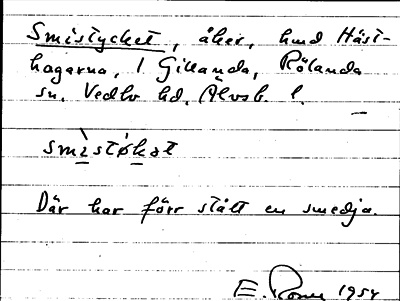 Smistycket, åker, hmd Häst-
hagarna, l. Gillanda, Rölanda
sn. Vedbo hd, Älvsb. l.
smìstøkət
Där har förr stått en smedja.
E. 1954